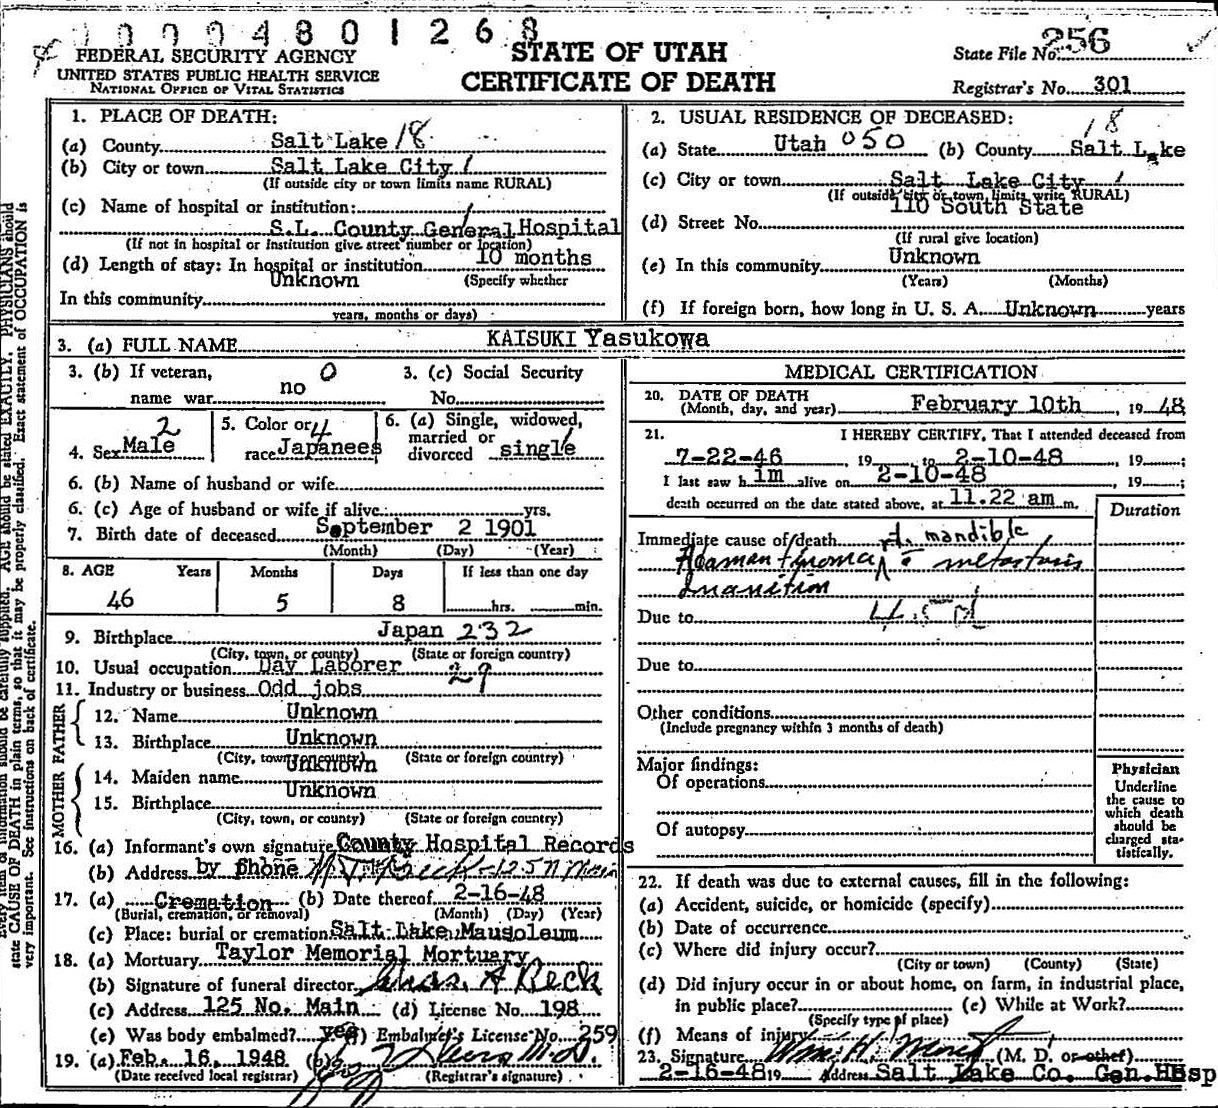 0004801268
FEDERAL SECURITY AGENCY
UNITED STATES PUBLIC HEALTH SERVICE
NATIONAL OFFICE OF VITAL STATISTICS
STATE OF UTAH
CERTIFICATE OF DEATH
State File No. 256
Registrar's No. 301
1. PLACE OF DEATH:
(a) County Salt Lake 18
(b) City or town Salt Lake City 1
(If outside city or town limits name RURAL)
(c) Name of hospital or institution: 1
S.L. County General Hospital
(If not in hospital or institution give street number or location)
(d) Length of stay: In hospital or institution 10 months
Unknown (Specify whether
In this community
years, months or days)
2. USUAL RESIDENCE OF DECEASED:
18
(a) State Utah 050 (b) County Salt Lake
(c) City or town Salt Lake City 1
(If outside city or town limits write RURAL)
110 South State
(d) Street No.
(If rural give location)
Unknown
(e) In this community
(Years) (Months)
(f) If foreign born, how long in U. S. A. Unknown years
3. (a) FULL NAME KAISUKI Yasukowa
3. (b) If veteran, 0 3. (c) Social Security
name war no No.
4. Sex Male 2
5. Color or 4
race Japanees
6. (a) Single, widowed,
married or
divorced single 1
6. (b) Name of husband or wife
6. (c) Age of husband or wife if alive yrs.
7. Birth date of deceased September 2 1901
(Month) (Day) (Year)
8. AGE Years Months Days If less than one day
46 5 8 hrs. min.
9. Birthplace Japan 232
(City, town, or county) (State or foreign country)
10. Usual occupation Day Laborer 29
11. Industry or business Odd jobs
FATHER
12. Name Unknown
13. Birthplace Unknown
(City, town, or county) (State or foreign country)
MOTHER
14. Maiden name Unknown
15. Birthplace Unknown
(City, town, or county) (State or foreign country)
16. (a) Informant's own signature County Hospital Records
(b) Address by phone 125 N Main
17. (a) Cremation (b) Date thereof 2-16-48
(Burial, cremation, or removal) (Month) (Day) (Year)
(c) Place: burial or cremation Salt Lake Mausoleum
18. (a) Mortuary Taylor Memorial Mortuary
(b) Signature of funeral director Chas. A Beck
(c) Address 125 No. Main (d) License No. 198
(e) Was body embalmed? yes (f) Embalmer's License No. 259
19. (a) Feb. 16, 1948 (b) M.D.
(Date received local registrar) (Registrar's signature)
MEDICAL CERTIFICATION
20. DATE OF DEATH
(Month, day, and year) February 10th, 19 48
21. I HEREBY CERTIFY, That I attended deceased from
7-22-46, 19 to 2-10-48, 19 ;
I last saw h im alive on 2-10-48, 19 ;
death occurred on the date stated above, at 11.22 am m.
Duration
Immediate cause of death rt. mandible
Adamantinoma c metastasis
Inanition
Due to
Due to
Other conditions
(Include pregnancy within 3 months of death)
Major findings:
Of operations
Of autopsy
Physician
Underline
the cause to
which death
should be
charged sta-
tistically.
22. If death was due to external causes, fill in the following:
(a) Accident, suicide, or homicide (specify)
(b) Date of occurrence
(c) Where did injury occur?
(City or town) (County) (State)
(d) Did injury occur in or about home, on farm, in industrial place,
in public place? (e) While at Work?
(Specify type of place)
(f) Means of injury
23. Signature Wm. H. (M. D. or other)
2-16-48 19 Address Salt Lake Co. Gen. Hosp
AGE should be stated EXACTLY. PHYSICIANS should
state CAUSE OF DEATH in plain terms, so that it may be properly classified. Exact statement of OCCUPATION is
very important. See instructions on back of certificate.